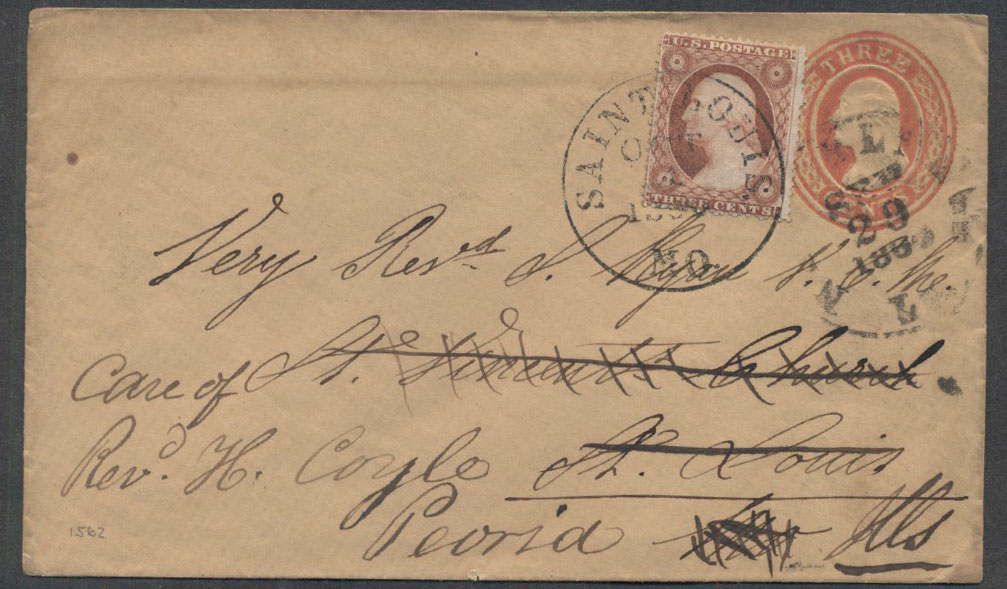 U.S. POSTAGE
THREE CENTS
THREE
SAINT LOUIS
OCT
MO.
SEP
29
Very Revd S. Ryan
Care of St. Vincent's Church
Revd. H. Coyle St. Louis
Peoria Ills
1562